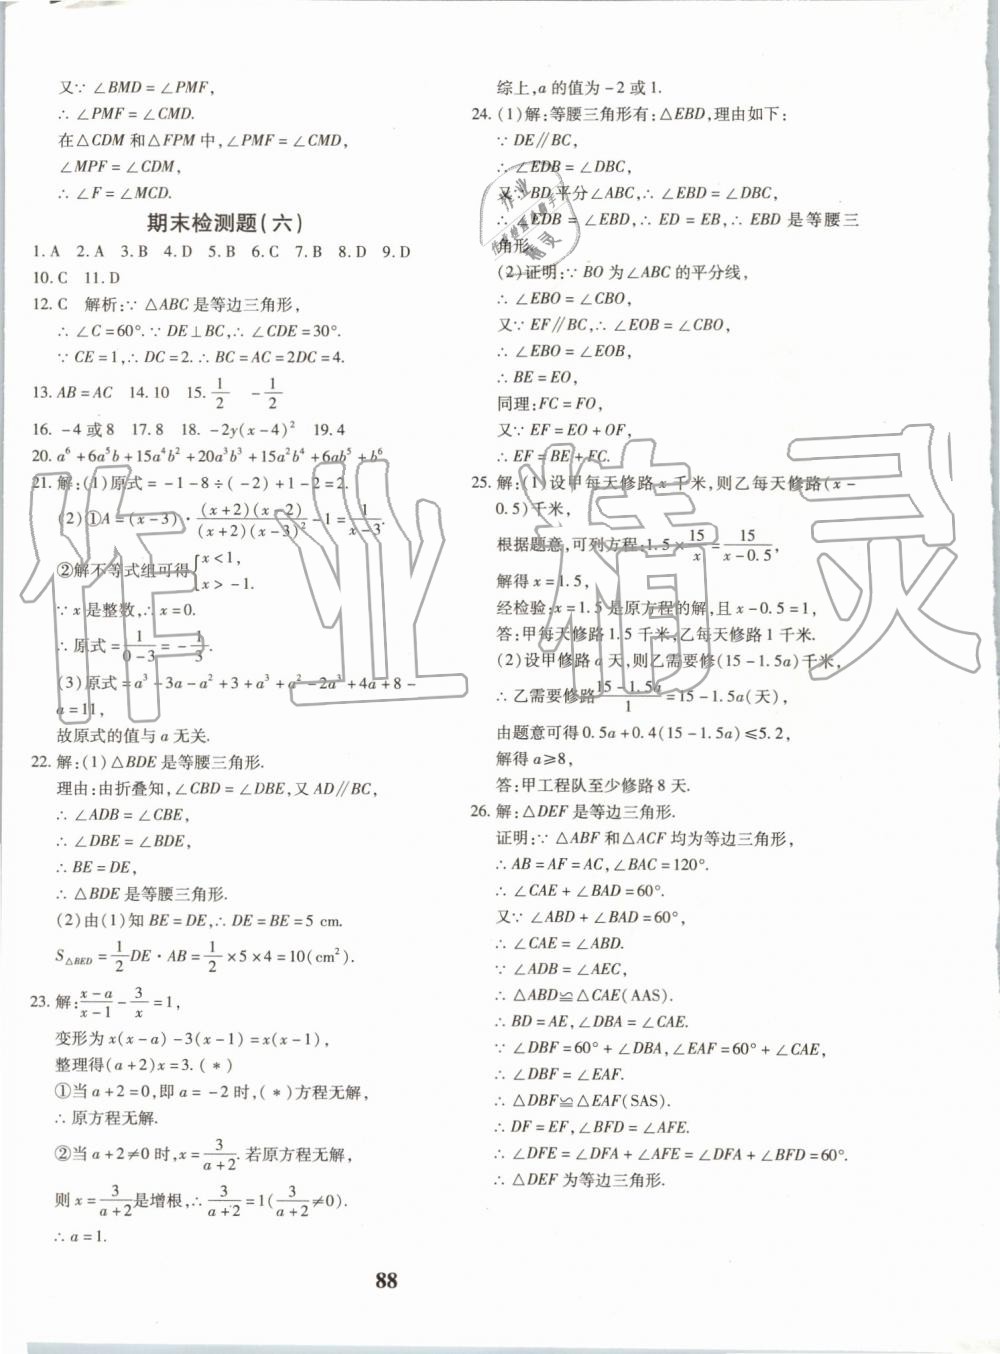 又∵ ∠BMD = ∠PMF,
∴ ∠PMF = ∠CMD.
在△CDM 和△FPM 中,∠PMF = ∠CMD,
∠MPF = ∠CDM,
∴ ∠F = ∠MCD.
期末检测题(六)
1. A 2. A 3. B 4. D 5. B 6. C 7. B 8. D 9. D
10. C 11. D
12. C 解析:∵ △ABC 是等边三角形,
∴ ∠C = 60°. ∵ DE⊥BC,∴ ∠CDE = 30°.
∵ CE = 1,∴ DC = 2. ∴ BC = AC = 2DC = 4.
13. AB = AC 14. 10 15. 1/2 -1/2
16. -4 或 8 17. 8 18. -2y(x-4)² 19. 4
20. a⁶+6a⁵b+15a⁴b²+20a³b³+15a²b⁴+6ab⁵+b⁶
21. 解:(1)原式 = -1-8÷(-2)+1-2=2.
(2)①A=(x-3)·(x+2)(x+2)/(x+2)(x-3)²-1=1/x-3.
②解不等式组可得{x<1,
x>-1.
∵ x 是整数,∴ x=0.
∴ 原式=1/0-3=-1/3.
(3)原式=a³-3a-a²+3+a³+a²-2a³+4a+8-
a=11,
故原式的值与 a 无关.
22. 解:(1)△BDE 是等腰三角形.
理由:由折叠知,∠CBD = ∠DBE,又 AD∥BC,
∴ ∠ADB = ∠CBE,
∴ ∠DBE = ∠BDE,
∴ BE = DE,
∴ △BDE 是等腰三角形.
(2)由(1)知 BE = DE,∴ DE = BE = 5 cm.
S△BED = 1/2 DE·AB = 1/2 ×5×4=10(cm²).
23. 解:x-a/x-1 - 3/x =1,
变形为 x(x-a)-3(x-1)=x(x-1),
整理得(a+2)x=3.(*)
①当 a+2=0,即 a=-2 时,(*)方程无解,
∴ 原方程无解.
②当 a+2≠0 时,x=3/a+2. 若原方程无解,
则 x=3/a+2 是增根,∴ 3/a+2=1(3/a+2≠0).
∴ a=1.
综上,a 的值为 -2 或 1.
24. (1)解:等腰三角形有:△EBD,理由如下:
∵ DE∥BC,
∴ ∠EDB = ∠DBC,
又∵ BD 平分∠ABC,∴ ∠EBD = ∠DBC,
∴ ∠EDB = ∠EBD,∴ ED = EB,∴ EBD 是等腰三
角形.
(2)证明:∵ BO 为∠ABC 的平分线,
∴ ∠EBO = ∠CBO,
又∵ EF∥BC,∴ ∠EOB = ∠CBO,
∴ ∠EBO = ∠EOB,
∴ BE = EO,
同理:FC = FO,
又∵ EF = EO+OF,
∴ EF = BE+FC.
25. 解:(1)设甲每天修路 x 千米,则乙每天修路(x-
0.5)千米,
根据题意,可列方程:1.5×15/x=15/x-0.5,
解得 x=1.5,
经检验:x=1.5 是原方程的解,且 x-0.5=1,
答:甲每天修路 1.5 千米,乙每天修路 1 千米.
(2)设甲修路 a 天,则乙需要修(15-1.5a)千米,
∴ 乙需要修路15-1.5a/1=15-1.5a(天),
由题意可得 0.5a+0.4(15-1.5a)≤5.2,
解得 a≥8,
答:甲工程队至少修路 8 天.
26. 解:△DEF 是等边三角形.
证明:∵ △ABF 和△ACF 均为等边三角形,
∴ AB = AF = AC,∠BAC = 120°.
∴ ∠CAE + ∠BAD = 60°.
又∵ ∠ABD + ∠BAD = 60°,
∴ ∠CAE = ∠ABD.
∵ ∠ADB = ∠AEC,
∴ △ABD≌△CAE(AAS).
∴ BD = AE,∠DBA = ∠CAE.
∵ ∠DBF = 60° + ∠DBA,∠EAF = 60° + ∠CAE,
∴ ∠DBF = ∠EAF.
∴ △DBF≌△EAF(SAS).
∴ DF = EF,∠BFD = ∠AFE.
∴ ∠DFE = ∠DFA + ∠AFE = ∠DFA + ∠BFD = 60°.
∴ △DEF 为等边三角形.
88
作业精灵